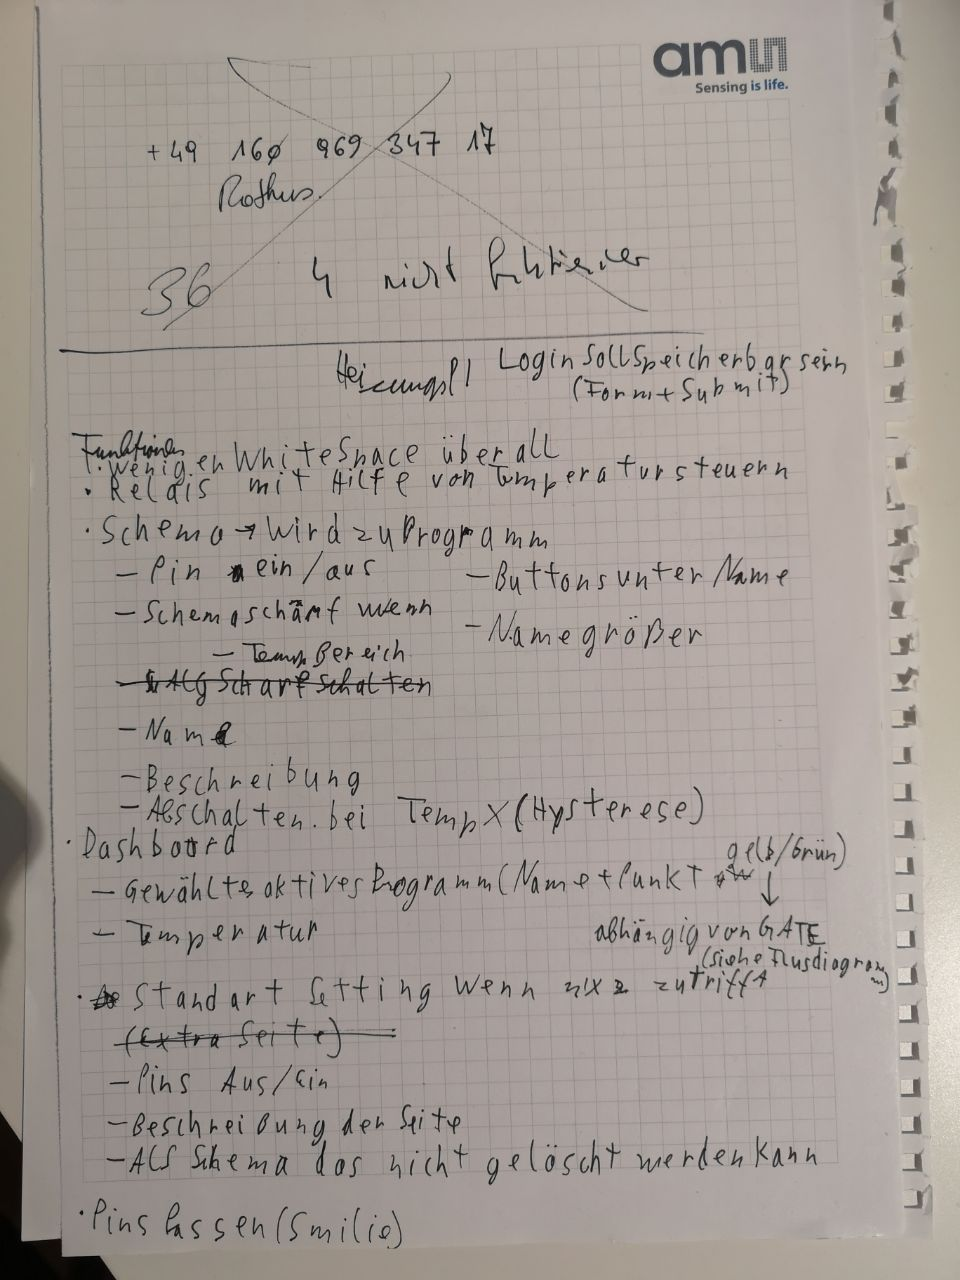 amu
Sensing is life.
+49 160 969 347 17
Rothus.
36 4 nicht funktionier
Login Soll Speicherbar sein
(Form + Submit)
Funktionen
Weniger WhiteSpace überall
• Relais mit Hilfe von Temperatur steuern
• Schema → Wird zu Programm
– Pin ein/aus
– Buttons unter Name
– Schema schärf wenn
– Name größer
– Temp. Bereich
– Als Scharf schalten
– Name
– Beschreibung
– Abschalten. bei Temp X (Hysterese)
• Dashboard
gelb/Grün)
– Gewähltes aktives Programm (Name + Punkt
↓
– Temperatur
abhängig von GATE
(siehe Flusdiagramm)
• Standart Setting wenn nix zutrifft
(Extra Seite)
– Pins Aus/Ein
– Beschreibung der Seite
– Als Schema das nicht gelöscht werden kann
• Pins lassen (Smilie)